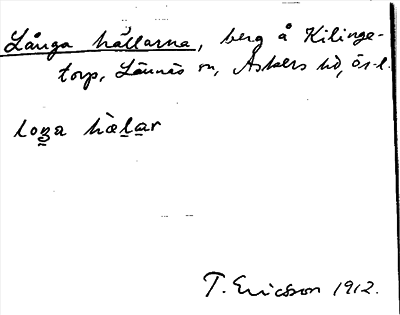 Långa hällarna, berg å Kilinge-
torp, Lännäs sn, Askers hd, ör. l.
loŋa hälar
T. Ericsson 1912.